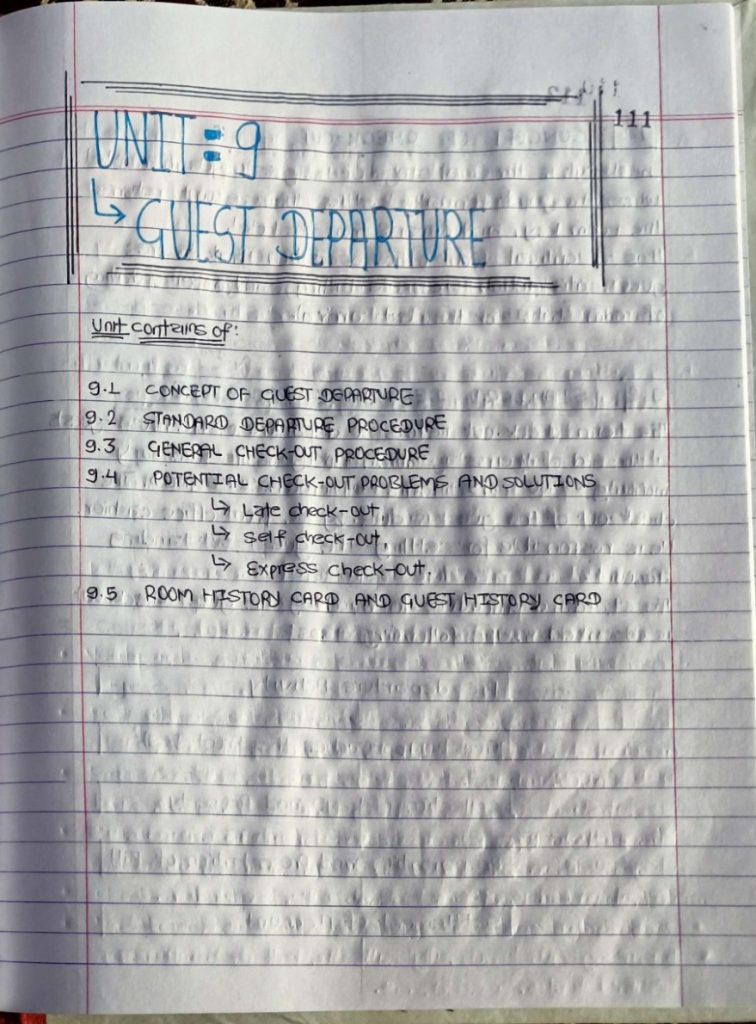 111
UNIT = 9
↳ GUEST DEPARTURE
Unit contains of:
9.1 CONCEPT OF GUEST DEPARTURE
9.2 STANDARD DEPARTURE PROCEDURE
9.3 GENERAL CHECK-OUT PROCEDURE
9.4 POTENTIAL CHECK-OUT PROBLEMS AND SOLUTIONS
↳ Late check-out.
↳ Self check-out.
↳ Express check-out.
9.5 ROOM HISTORY CARD AND GUEST HISTORY CARD